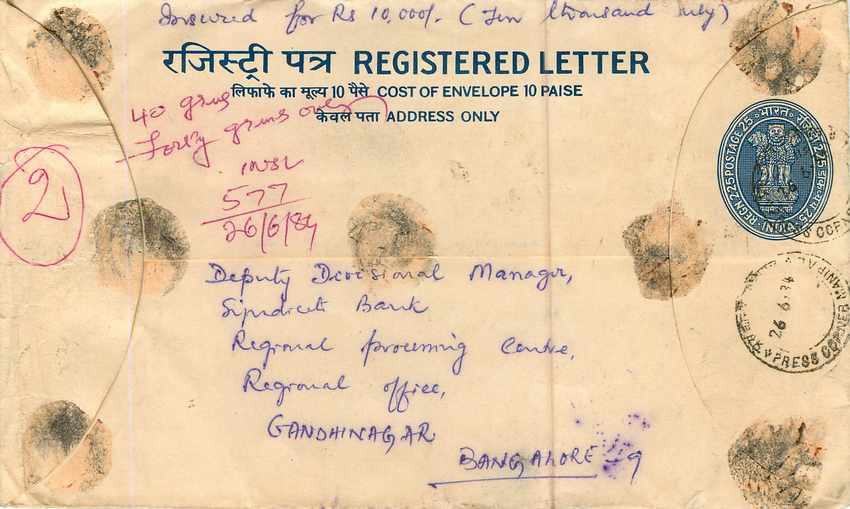 Insured for Rs 10,000/- (Ten thousand only)
रजिस्ट्री पत्र REGISTERED LETTER
लिफाफे का मूल्य 10 पैसे COST OF ENVELOPE 10 PAISE
केवल पता ADDRESS ONLY
40 grms
Forty grms only
INSL
577
26/6/84
2
REGN 225 POSTAGE 25 भारत INDIA
PRESS CORNER MANIPAL
26 6 84
Deputy Divisional Manager,
Syndicate Bank
Regional processing Centre,
Regional office,
GANDHINAGAR
BANGALORE - 9